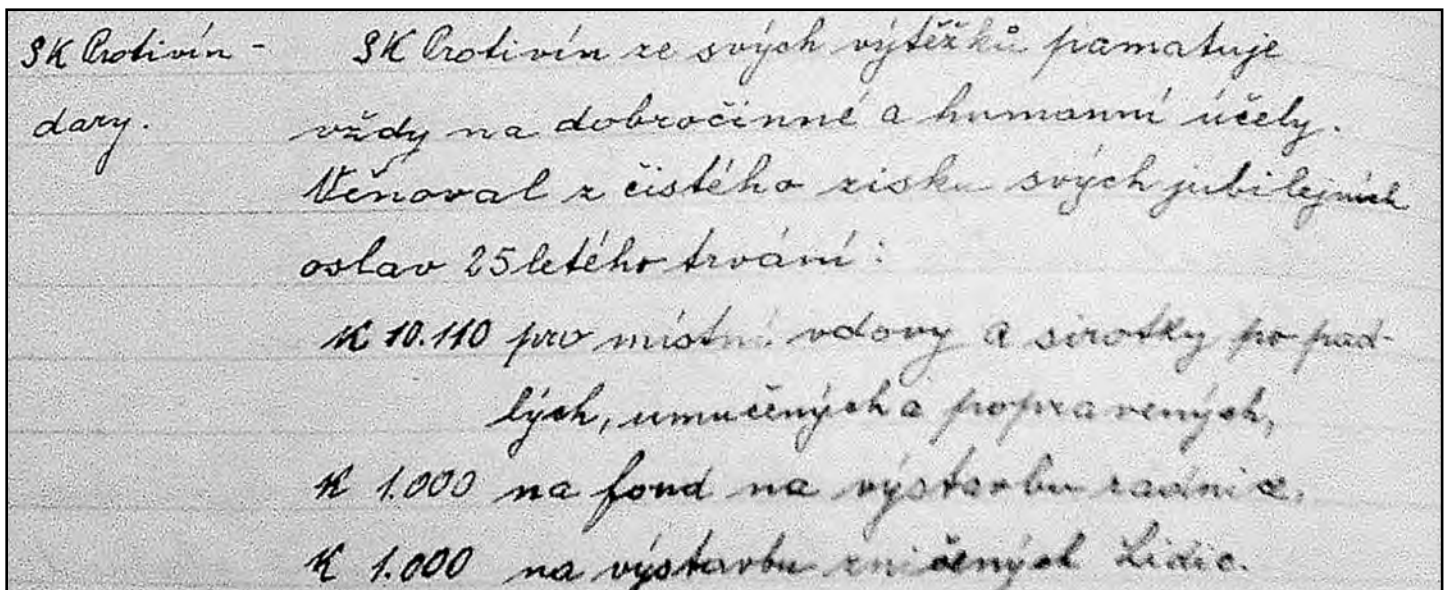 SK Protivín -
dary.
SK Protivín ze svých výtěžků pamatuje
vždy na dobročinné a humanní účely.
Věnoval z čistého zisku svých jubilejních
oslav 25letého trvání:
K 10.110 pro místní vdovy a sirotky po pad-
lých, umučených a popravených,
K 1.000 na fond na výstavbu radnice,
K 1.000 na výstavbu zničených Lidic.